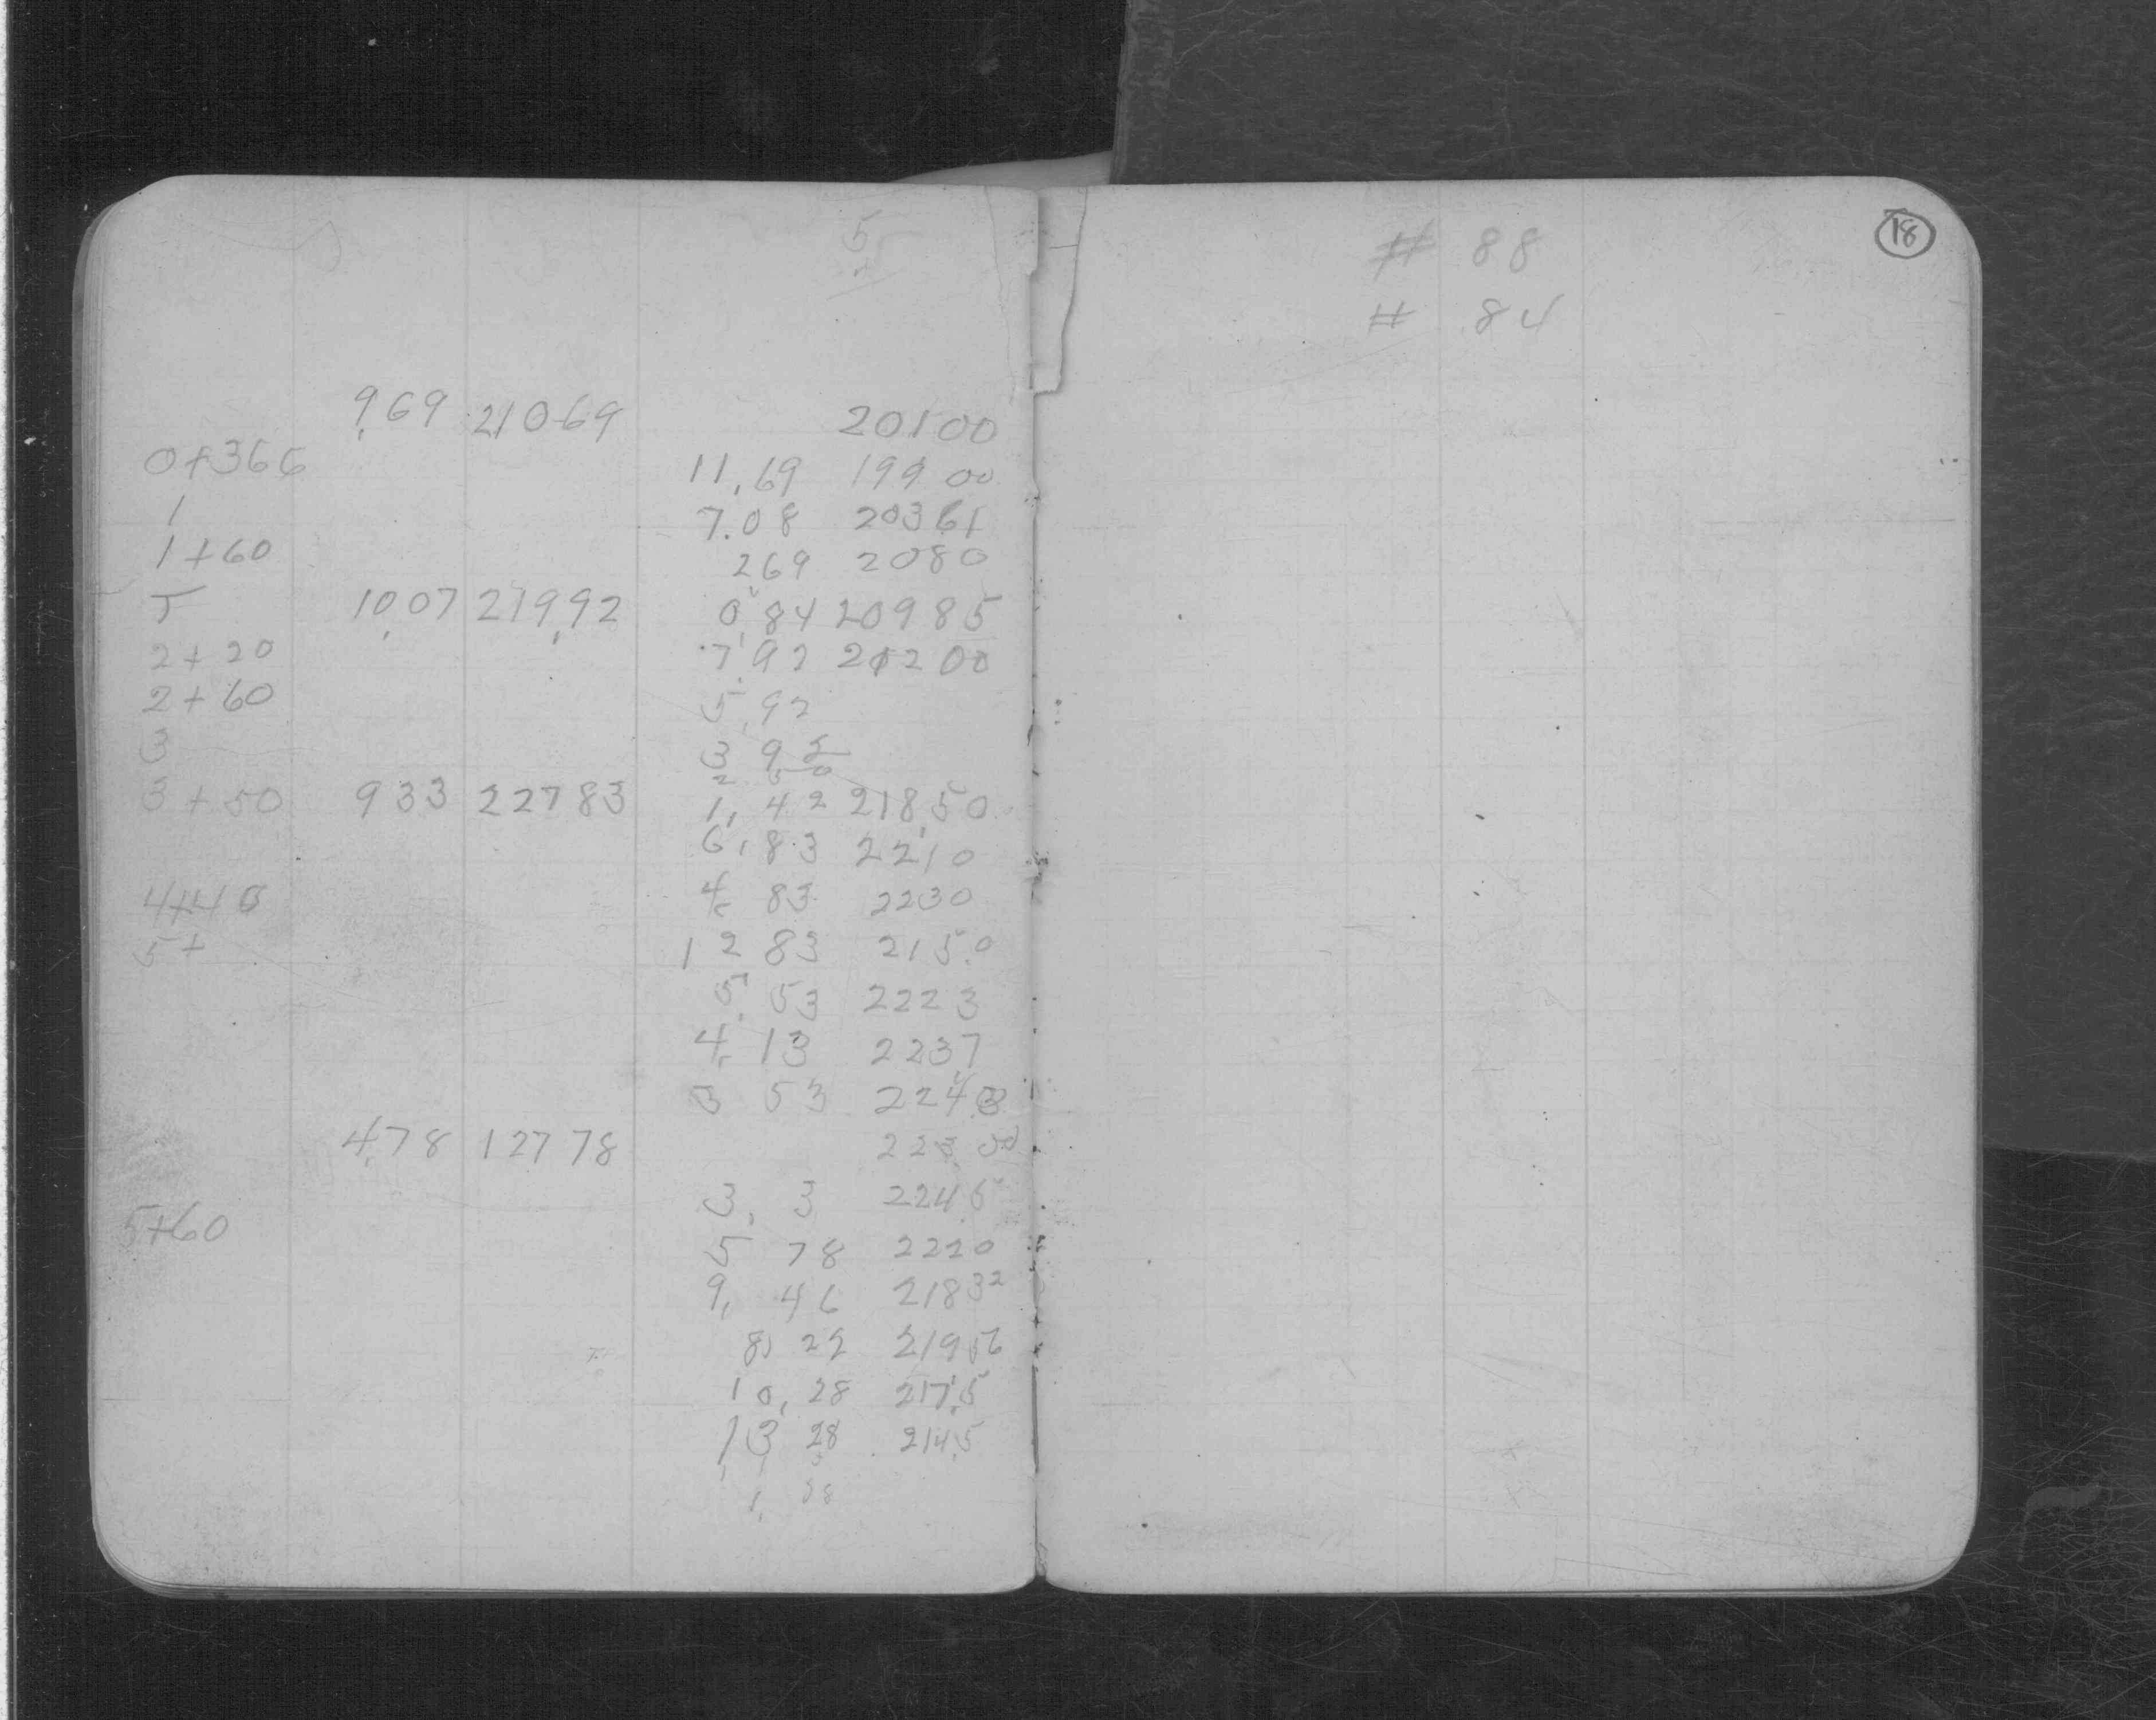 5
9,69 21069 20100
0+366 11,69 199 00
1 7.08 20361
1+60 269 2080
T 10,07 219,92 0 84 20985
2+20 7,92 21200
2+60 5,92
3 3 92
2 50
3+50 933 22783 1,42 218,50
6,83 2210
4+40 4, 83 2230
5+ 12 83 215.0
5. 53 2223
4, 13 2237
3 53 2243
4,78 12778
3, 3 224.5
5+60 5 78 2220
9, 46 21832
8, 22 2195
10,28 217,5
13 28 214.5
1, 28
# 88
# 84
18